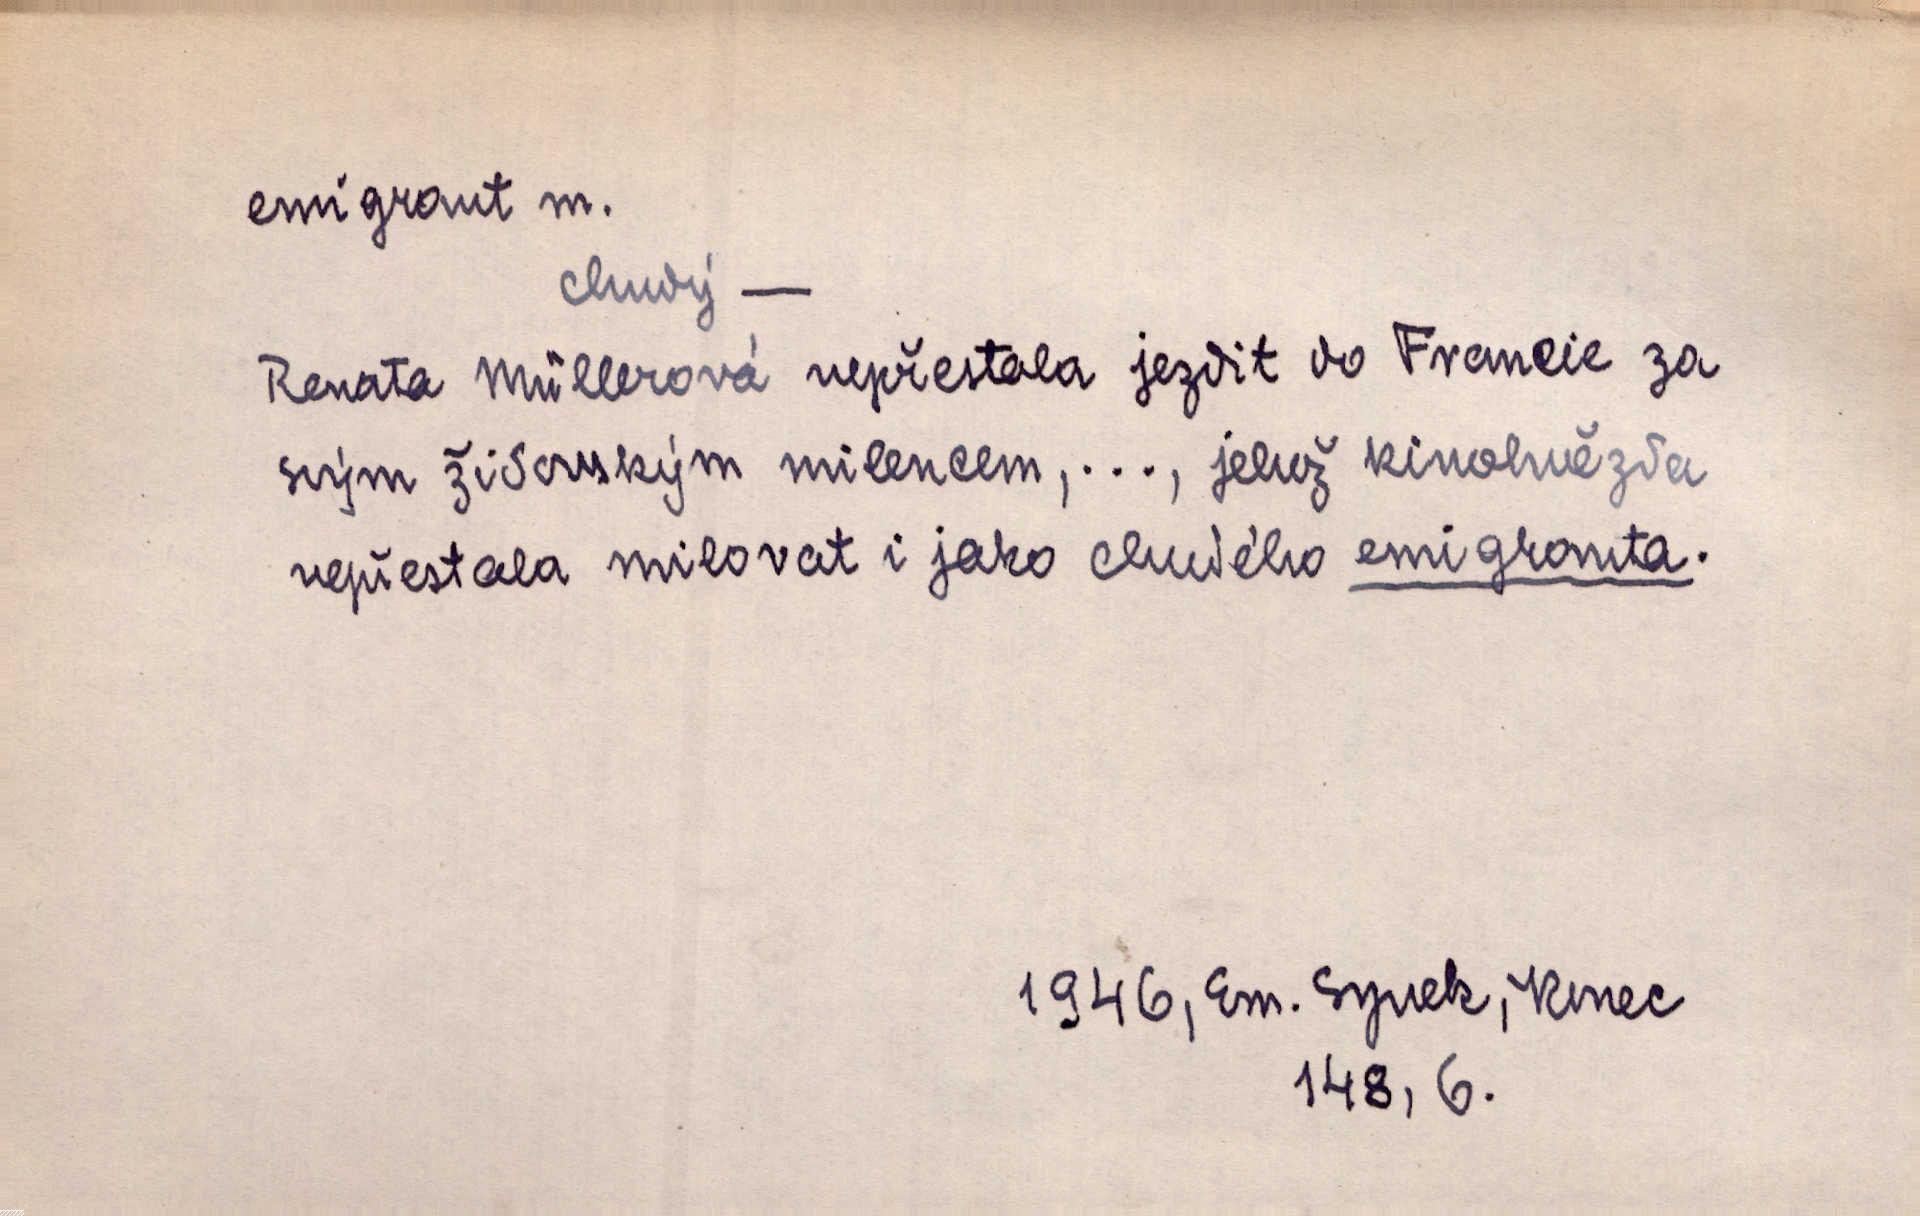 emigrant m.
chudý —
Renata Müllerová nepřestala jezdit do Francie za
svým židovským milencem, ..., jehož kinohvězda
nepřestala milovat i jako chudého emigranta.
1946, Em. Synek, Konec
148, 6.